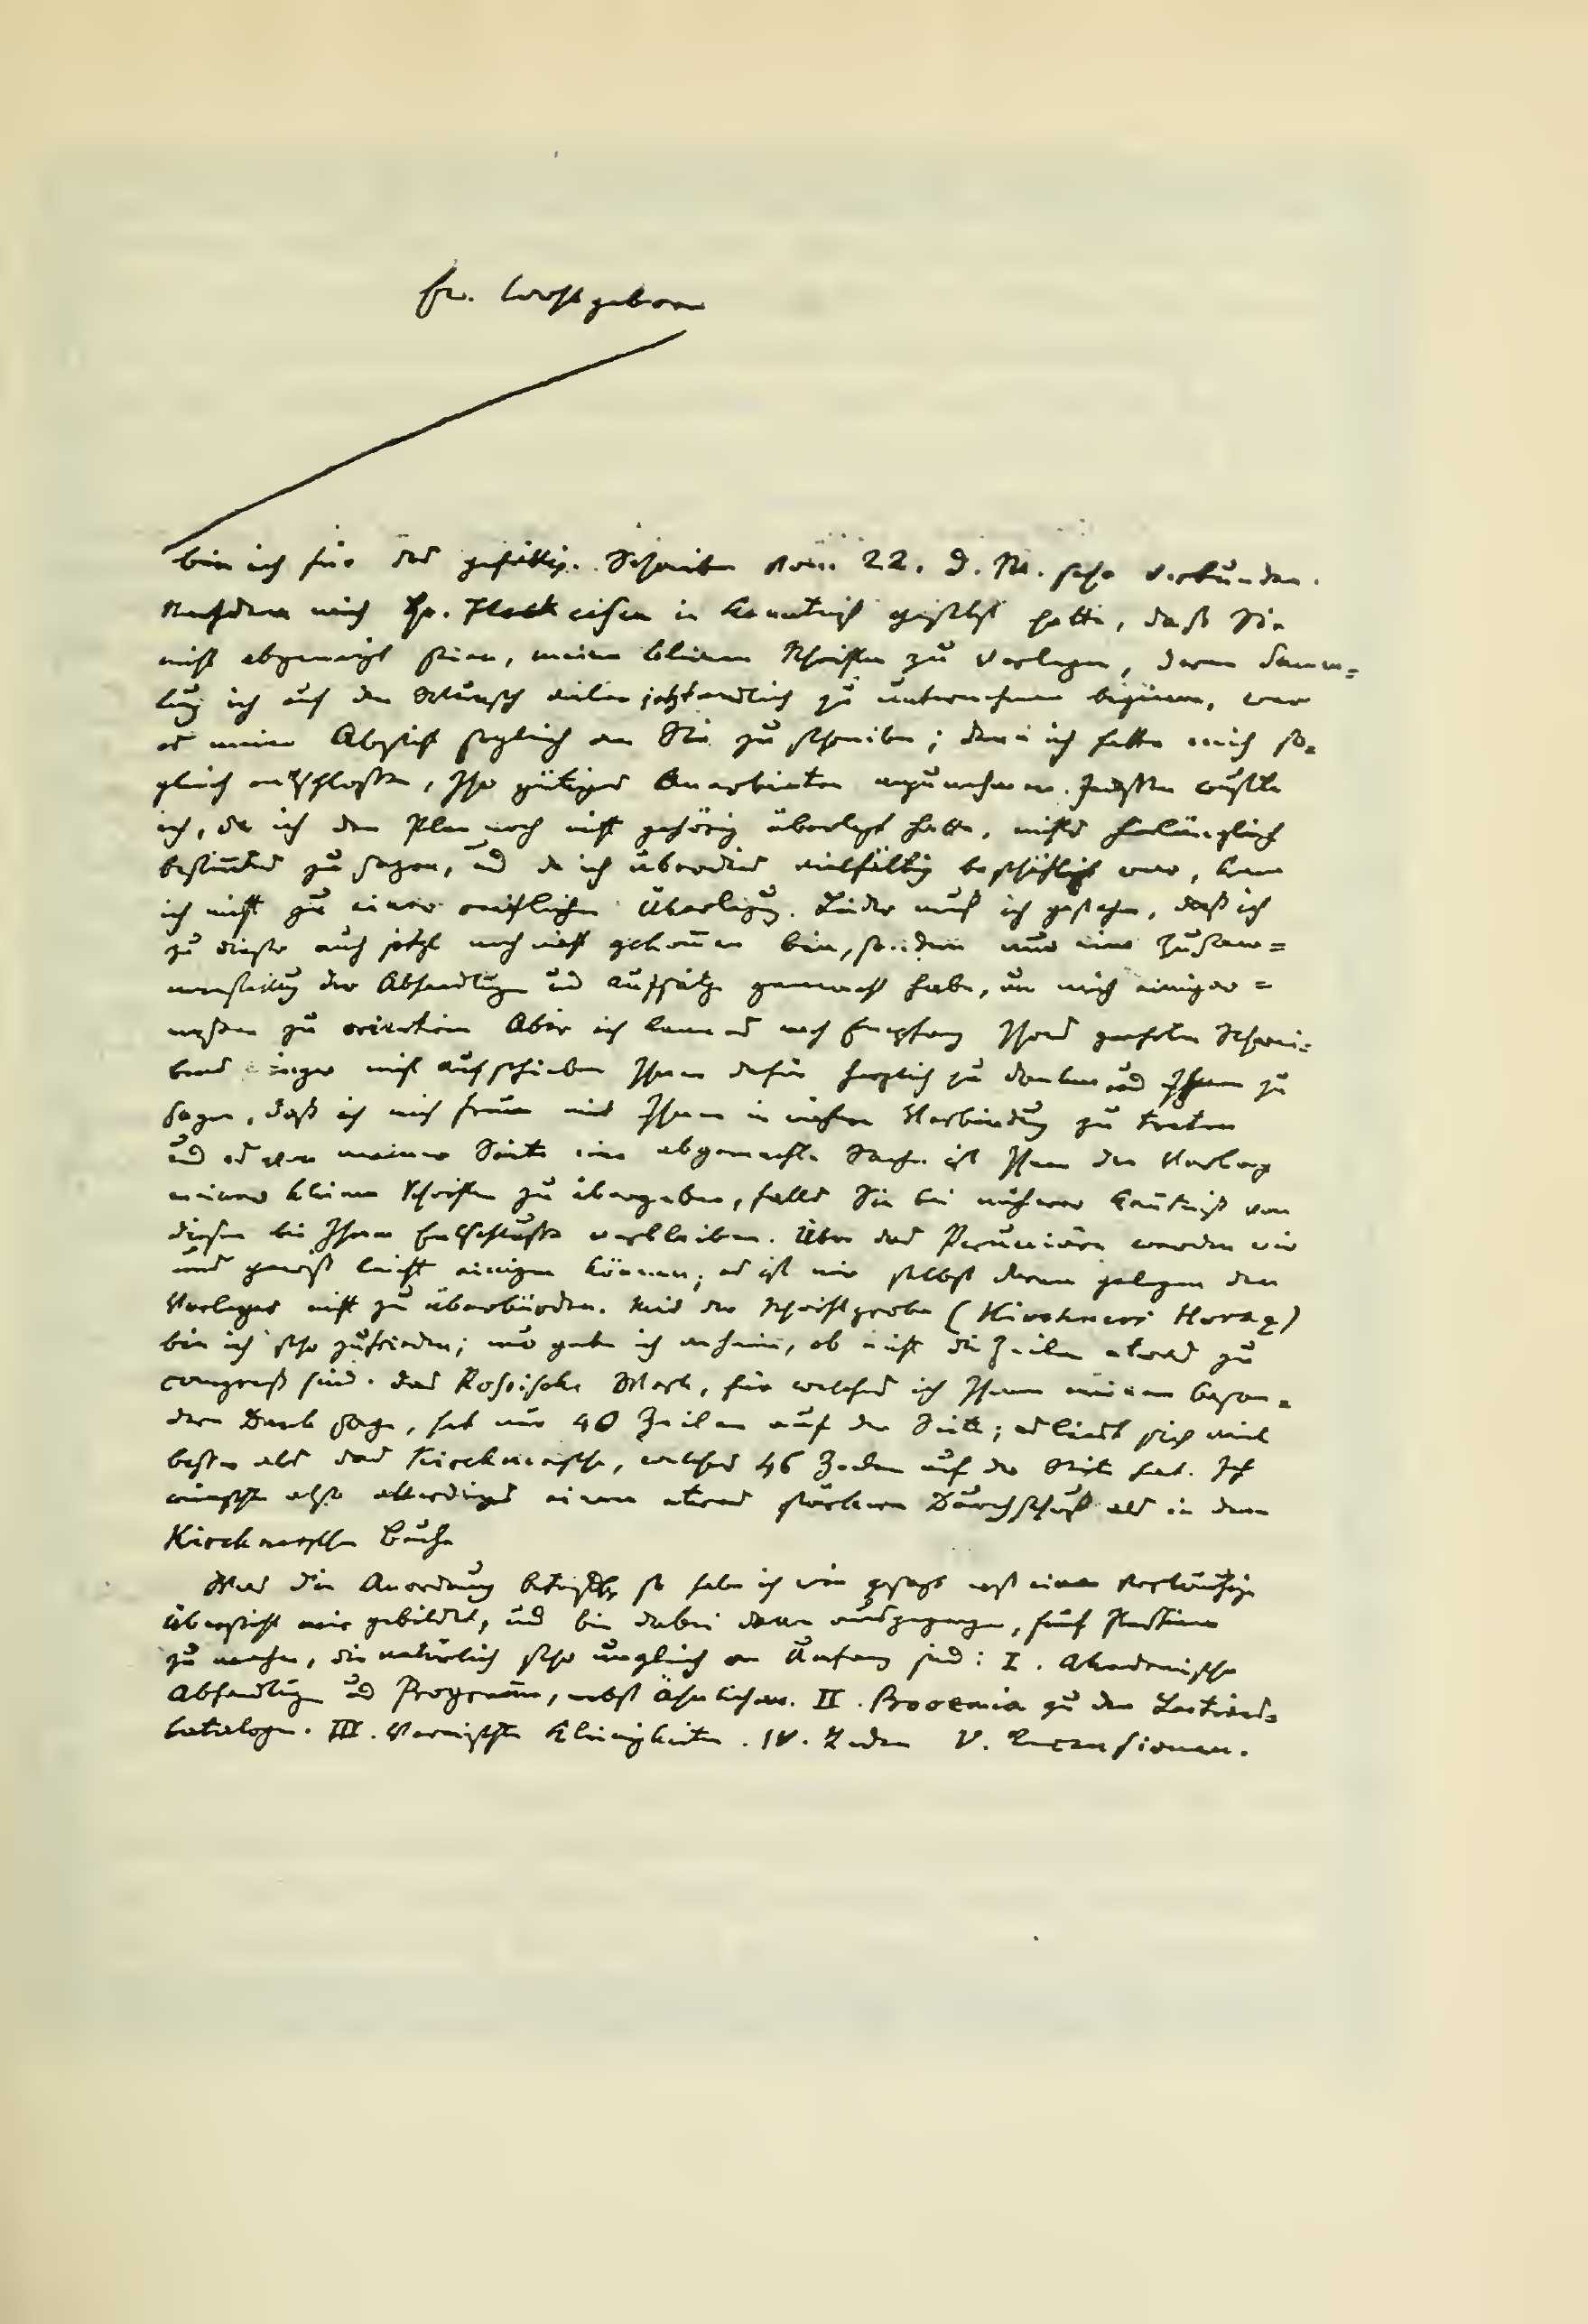 Ew. Wohlgeboren
bin ich für das gefällig. Schreiben vom 22. d. M. sehr verbunden.
Nachdem mich Hr. Fleckeisen in Kenntniß gesetzt hatte, daß Sie
nicht abgeneigt seien, meine kleinen Schriften zu verlegen, deren Samm-
lung ich auf den Wunsch vieler jetzt endlich zu unternehmen beginne, war
es meine Absicht sogleich an Sie zu schreiben; denn ich hatte mich so-
gleich entschlossen, Ihr gütiges Anerbieten anzunehmen. Indessen wußte
ich, da ich den Plan noch nicht gehörig überlegt hatte, nichts hinlänglich
bestimmtes zu sagen, und da ich überdies vielfältig beschäftigt war, kam
ich nicht zu einer reiflichen Überlegung. Leider muß ich gestehen, daß ich
zu dieser auch jetzt noch nicht gekommen bin, sondern nur eine Zusam-
menstellung der Abhandlungen und Aufsätze gemacht habe, um mich einiger-
maßen zu orientiren Aber ich kann es nach Empfang Ihres geehrten Schrei-
bens länger nicht aufschieben Ihnen dafür herzlich zu danken und Ihnen zu
sagen, daß ich mich freue mit Ihnen in nähere Verbindung zu treten
und es von meiner Seite eine abgemachte Sache ist Ihnen den Verlag
meiner kleinen Schriften zu übergeben, falls Sie bei näherer Kenntniß von
diesen bei Ihrem Entschlusse verbleiben. Über das Pecuniäre werden wir
uns gewiß leicht einigen können; es ist mir selbst daran gelegen den
Verleger nicht zu überbürden. Mit der Schriftprobe (Kirchners Horaz)
bin ich sehr zufrieden; nur gebe ich anheim, ob nicht die Zeilen etwas zu
compreß sind. Das Rossische Werk, für welches ich Ihnen meinen beson-
dern Dank sage, hat nur 40 Zeilen auf der Seite; es liest sich viel
besser als das Kirchnerische, welches 46 Zeilen auf der Seite hat. Ich
wünschte also allerdings einen etwas stärkeren Durchschuß als in dem
Kirchnerschen Buche
Was die Anordnung betrifft, so habe ich wie gesagt erst eine vorläufige
Übersicht mir gebildet, und bin dabei davon ausgegangen, fünf Sectionen
zu machen, die natürlich sehr ungleich an Umfang sind: I. Akademische
Abhandlungen und Programme, nebst Ähnlichem. II. Prooemia zu den Lections-
katalogen. III. Vermischte Kleinigkeiten. IV. Reden V. Recensionen.